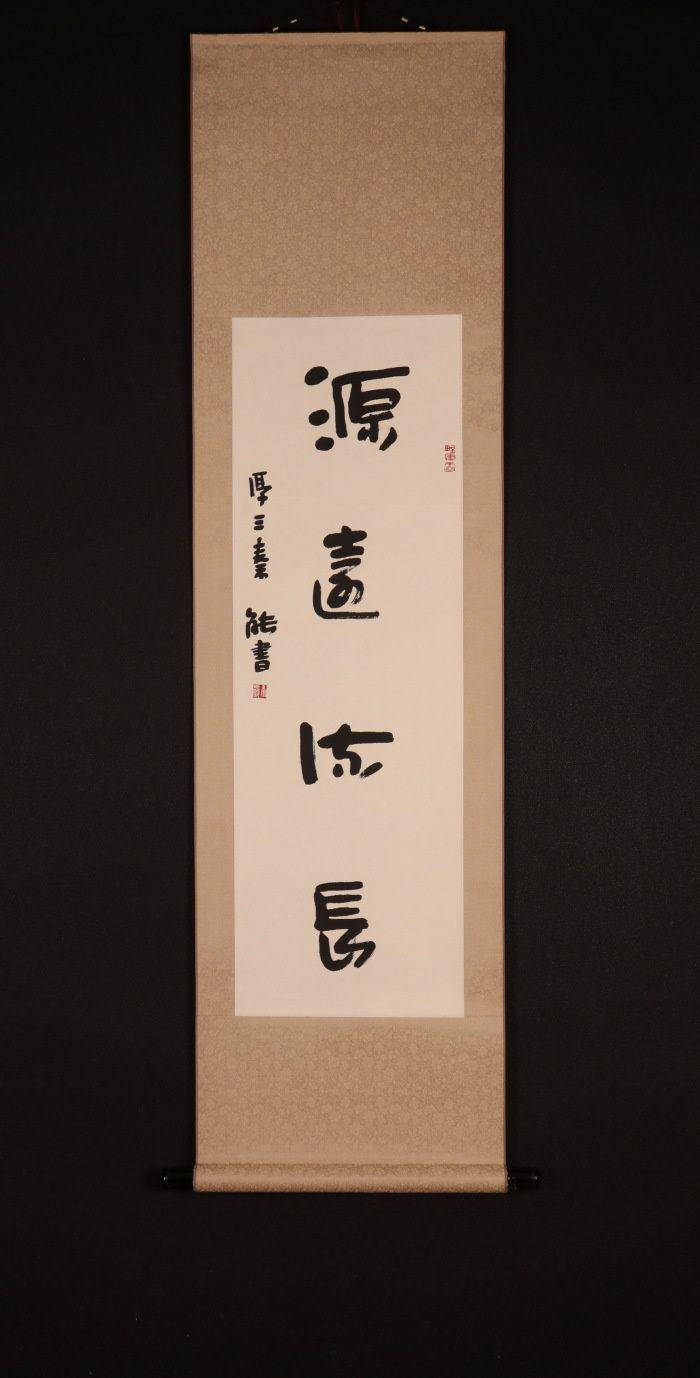 源遠流長
厚三秦 能書